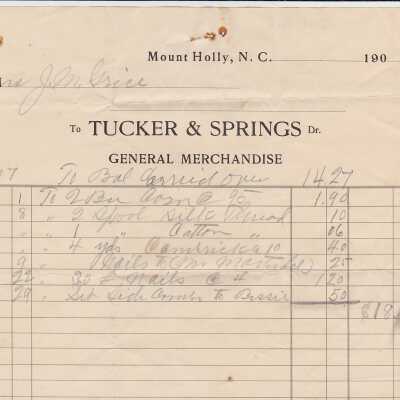 Mount Holly, N. C. 190
J. M. Grice
To TUCKER & SPRINGS Dr.
GENERAL MERCHANDISE
To Bal Carried over 14.27
1 To 2 Bu Corn @ 95 1.90
8 " 2 Spool Silk 10
" " 1 " Cotton 06
" " 4 yds @ 10 40
9 " Nails to 25
22 " 30 # Nails @ 4 1.20
29 " Set Side to Bessie 50